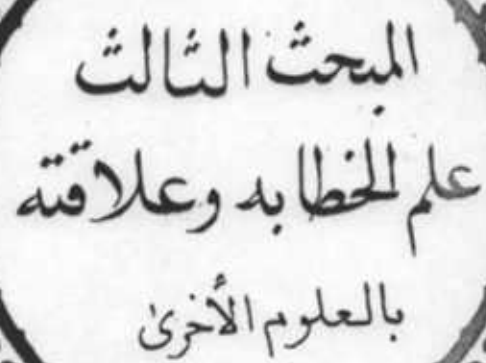 المبحث الثالث
علم الخطابه وعلاقته
بالعلوم الأخرىٰ